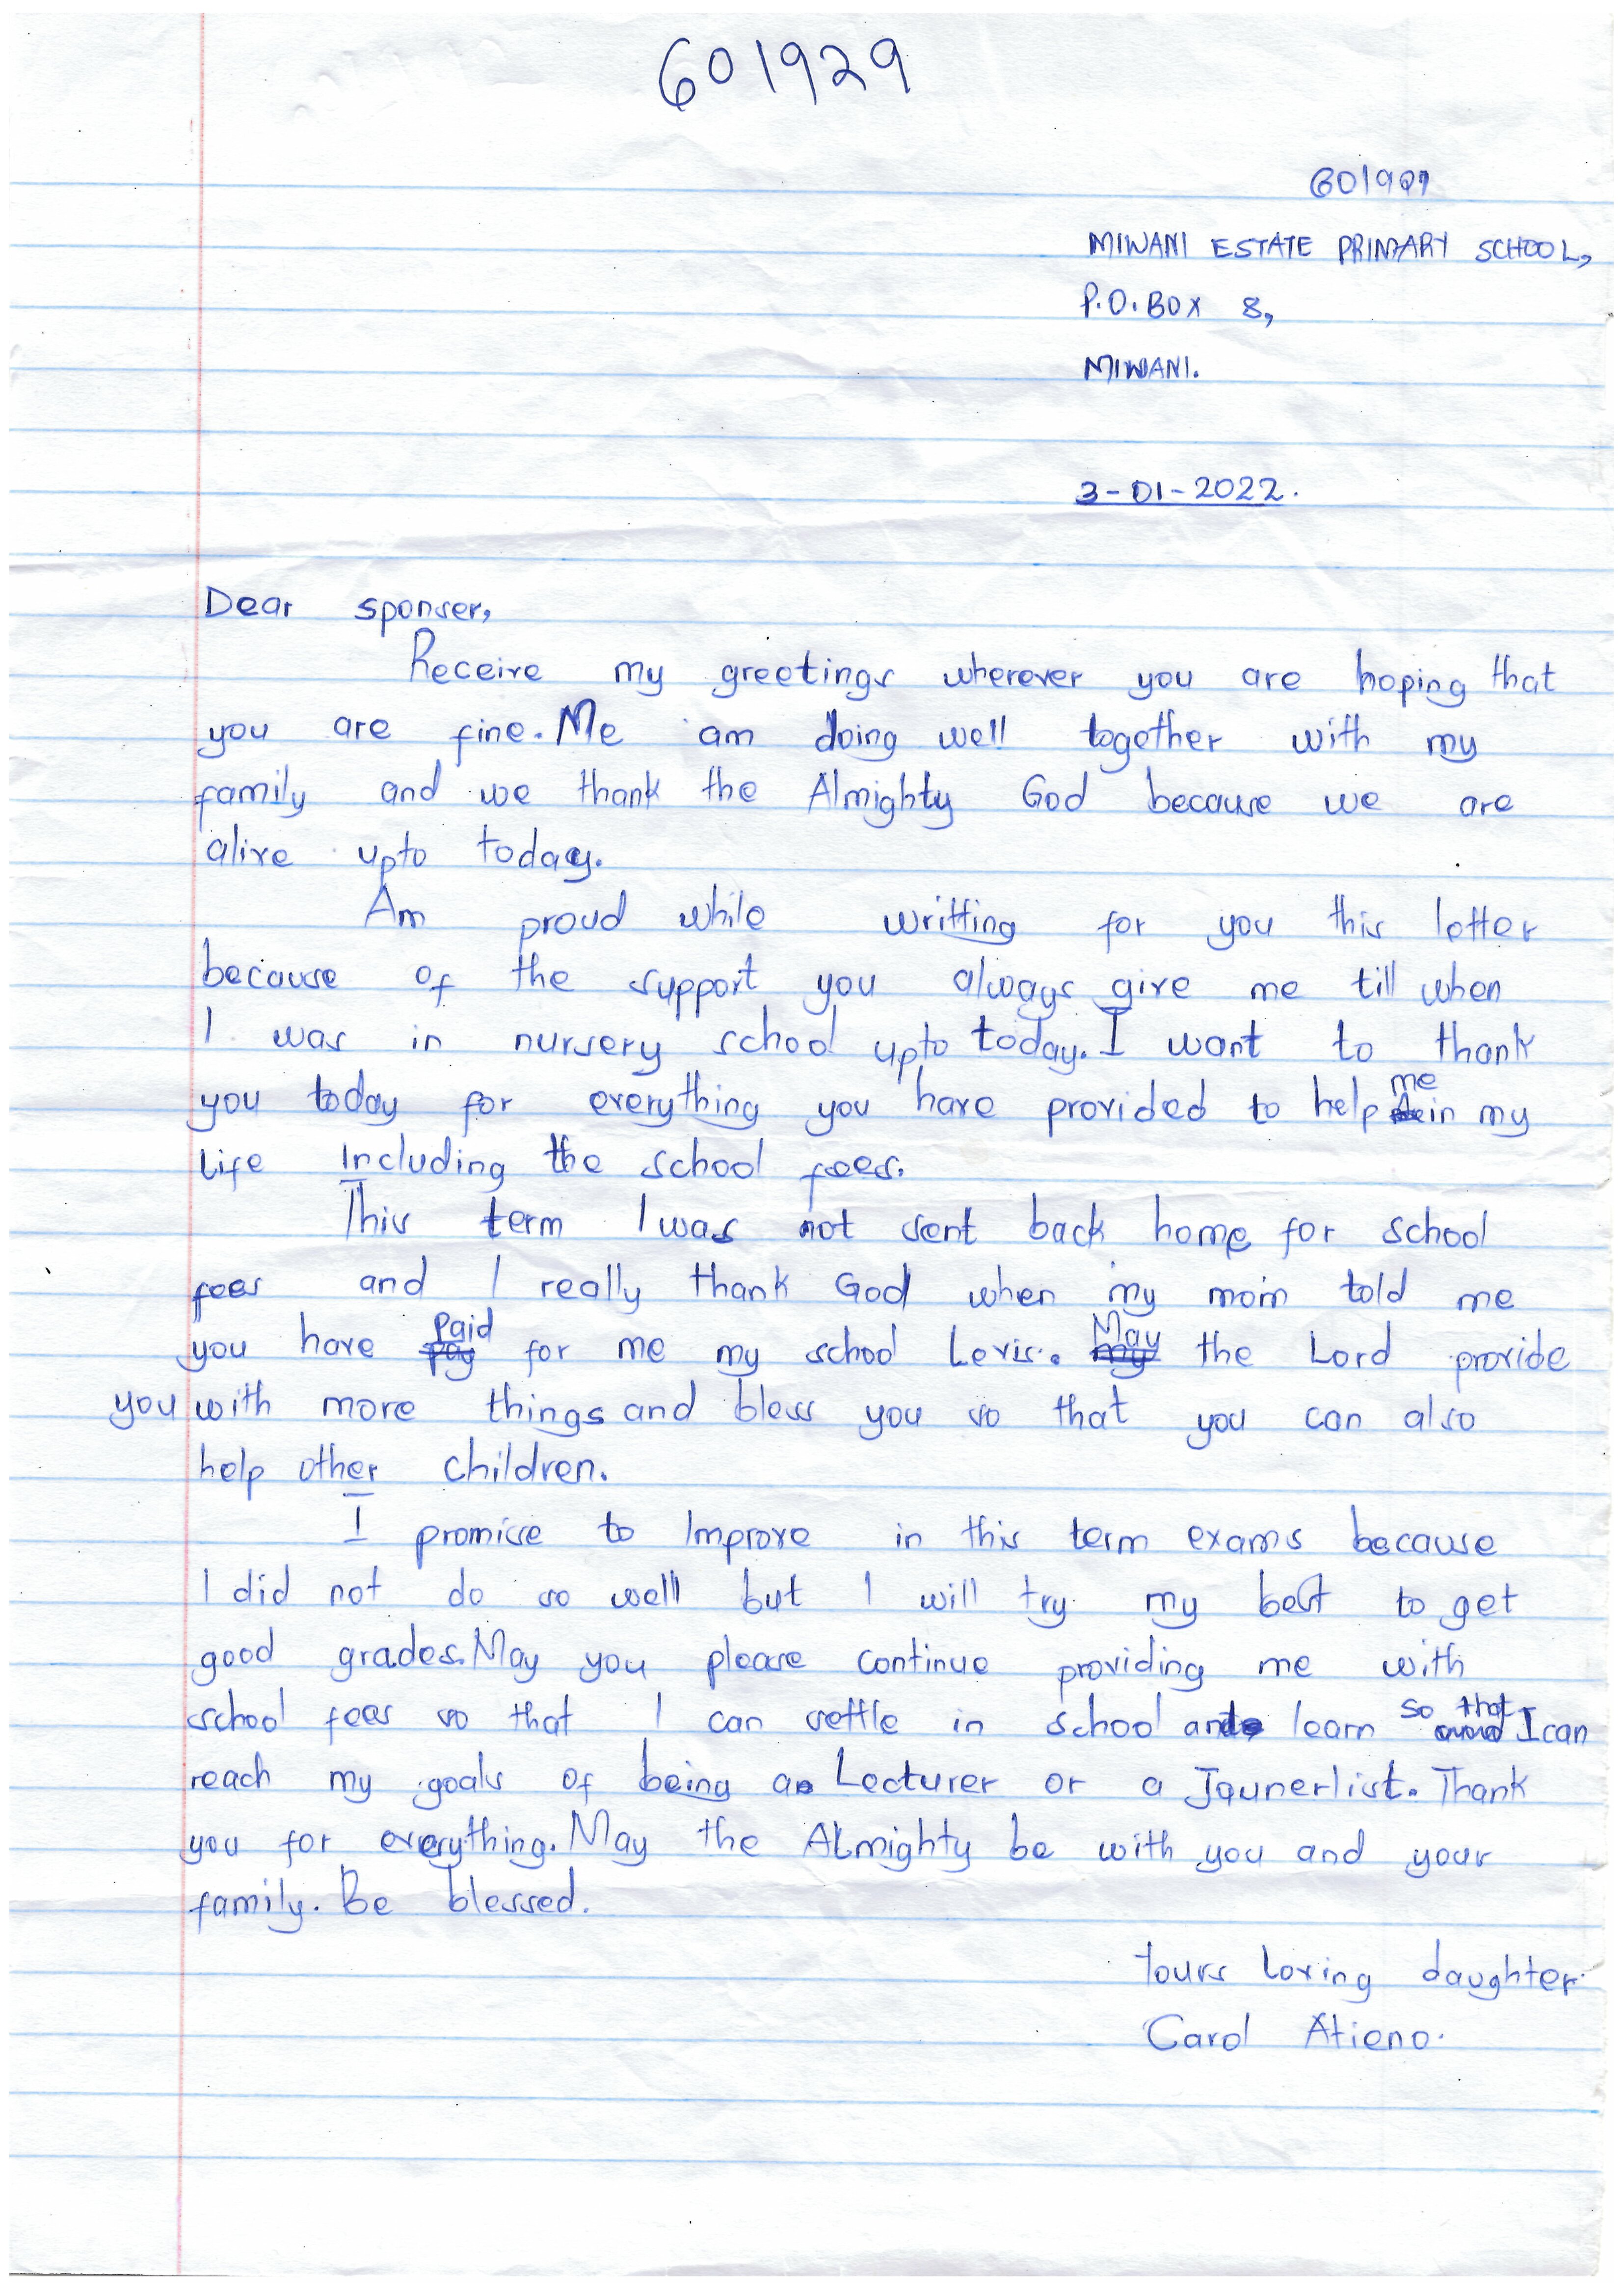 601929
MIWANI ESTATE PRIMARY SCHOOL,
P.O.BOX 8,
MIWANI.
3-01-2022.
Dear sponser,
Receive my greetings wherever you are hoping that
you are fine. Me am doing well together with my
family and we thank the Almighty God because we are
alive upto today.
Am proud while writting for you this letter
because of the support you always give me till when
I was in nursery school upto today. I want to thank
you today for everything you have provided to help me in my
life Including the school fees.
This term I was not sent back home for school
fees and I really thank God when my mom told me
you have paid for me my school Levis. May the Lord provide
you with more things and bless you so that you can also
help other children.
I promise to Improve in this term exams because
I did not do so well but I will try my best to get
good grades. May you please continue providing me with
school fees so that I can settle in school and learn so that I can
reach my goals of being a Lecturer or a Jaunerlist. Thank
you for everything. May the ALmighty be with you and your
family. Be blessed.
Yours loving daughter
Carol Atieno.